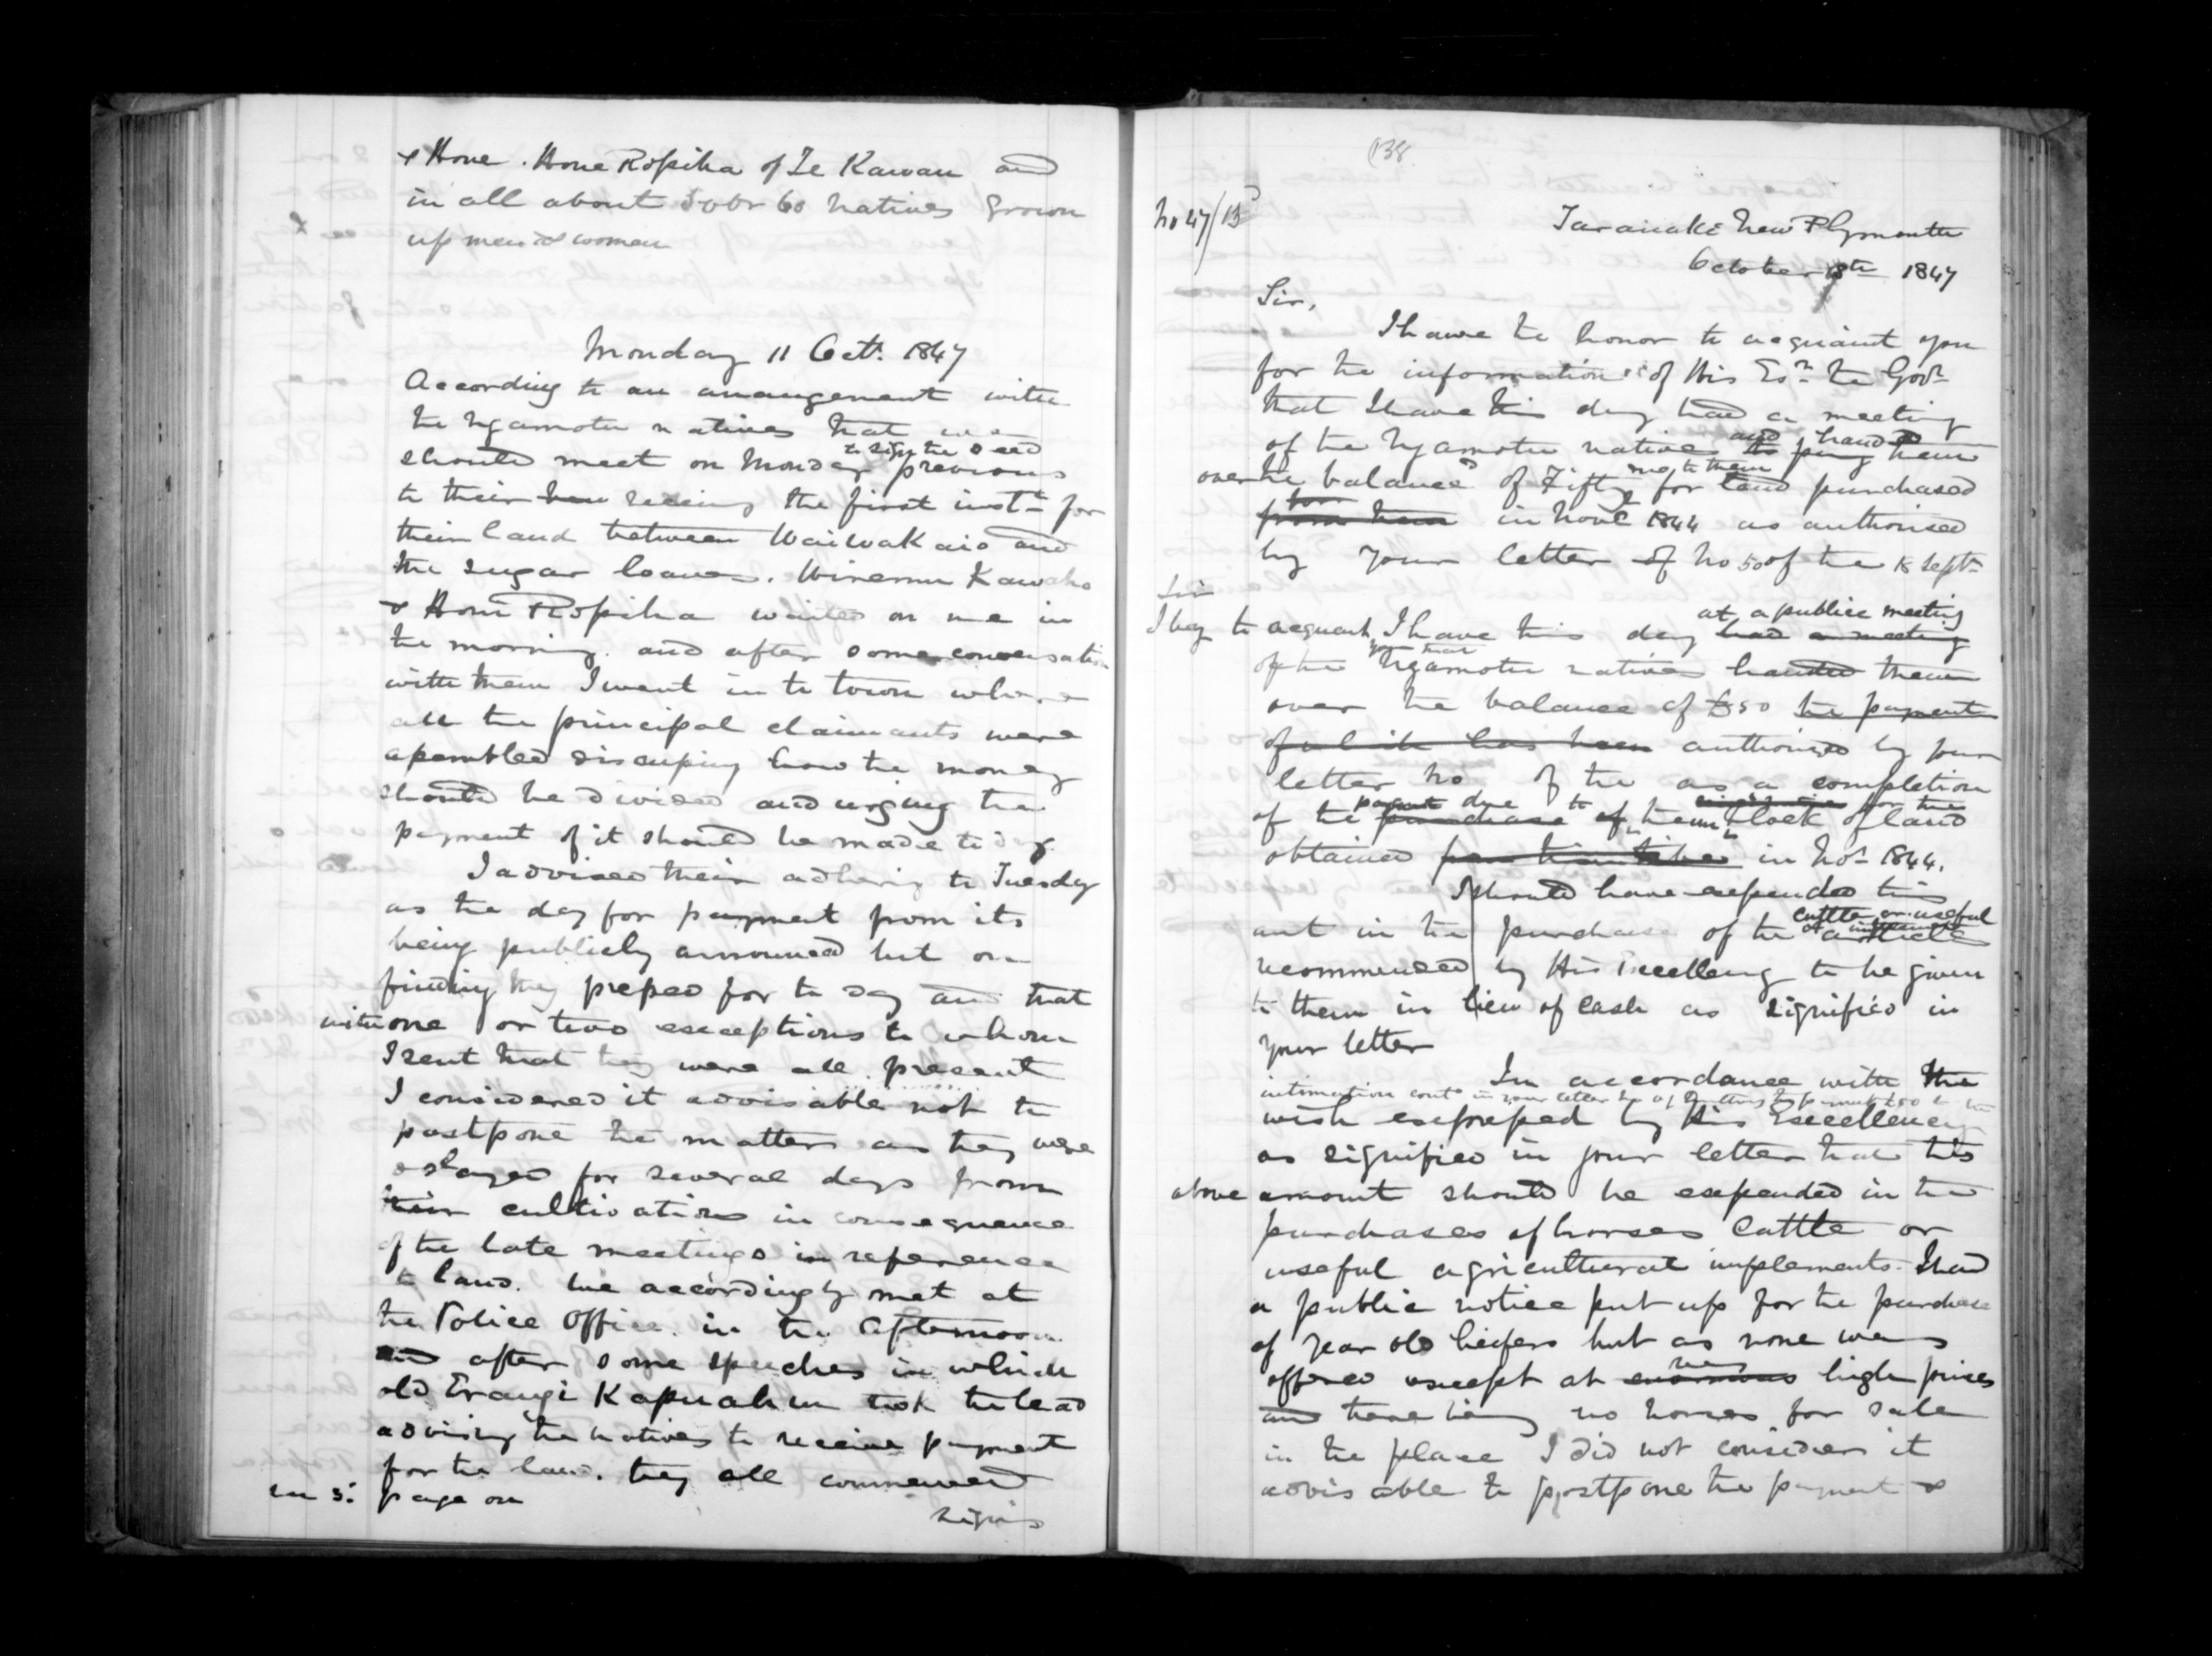 & Hone. Hone Ropiha of Te Kawau and
in all about 50 or 60 natives grown
up men & women
Monday 11 Oct. 1847
According to an arrangement with
the Ngamotu natives that we
to sign the deed
should meet on Monday previous
to their receing the first instt for
their land between Waiwakaio and
the sugar loaves. Wiremu Kawaho
& Hone Ropiha waited on me in
the morning. and after some conversation
with them I went in to town where
all the principal claimants were
assembled discussing how the money
should be divided and urging the
payment of it should be made to day.
I advised their adhering to Tuesday
as the day for payment from its
being publicly announced but on
finding they pressed for to day and that
with one or two exceptions to whom
I sent that they were all present
I considered it advisable not to
postpone the matter as they were
delayed for several days from
their cultivations in consequence
of the late meetings in reference
to land. We accordingly met at
the Police Office. in the afternoon
and after some speeches in which
old Erangi Kapuahu took the lead
advising the natives to receive payment
for the land. they all commenced
page on
signing
138
No 47/15
Taranaki New Plymouth
October 18th 1847
Sir,
I have the honor to acquaint you
for the information of His Exn the Govr
that I have this day had a meeting
and handed
of the Ngamotu natives to pay them
me to them
over the balance of Fifty for land purchased
for
from them in Novr 1844 as authorised
by your letter of No 50 of the 18 Septr
Sir
at a public meeting
I beg to acquaint, I have this day had a meeting
you that
of the Ngamotu natives handed them
over the balance of £50 the payment
of which has been authorized by your
letter No of the as a completion
payment due to for the
of the purchase of them block of land
obtained in Nov 1844.
I should have expended this
cattle or useful
amt in the purchase of the articles
recommended by His Excellency to be given
to them in lieu of cash as signified in
your letter
In accordance with the
intimation contd in your letter
wish expressed by His Excellency
as signified in your letter that this
above amount should be expended in the
purchases of horses cattle or
useful agricultural implements. I had
a public notice put up for the purchase
of year old heifers but as none were
very
offered except at enormous high prices
and there being no horses for sale
in the place I did not consider it
advisable to postpone the payment &